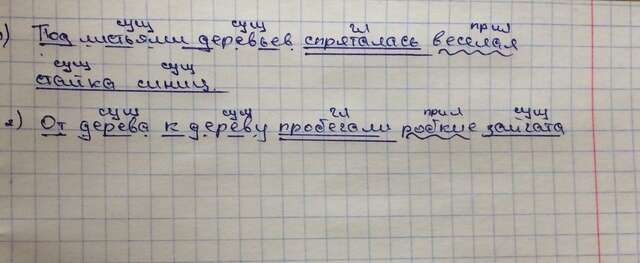 сущ сущ гл прил
1) Под листьями деревьев спряталась веселая
сущ сущ
стайка синиц.
сущ сущ гл прил сущ
2) От дерева к дереву пробегали робкие зайчата